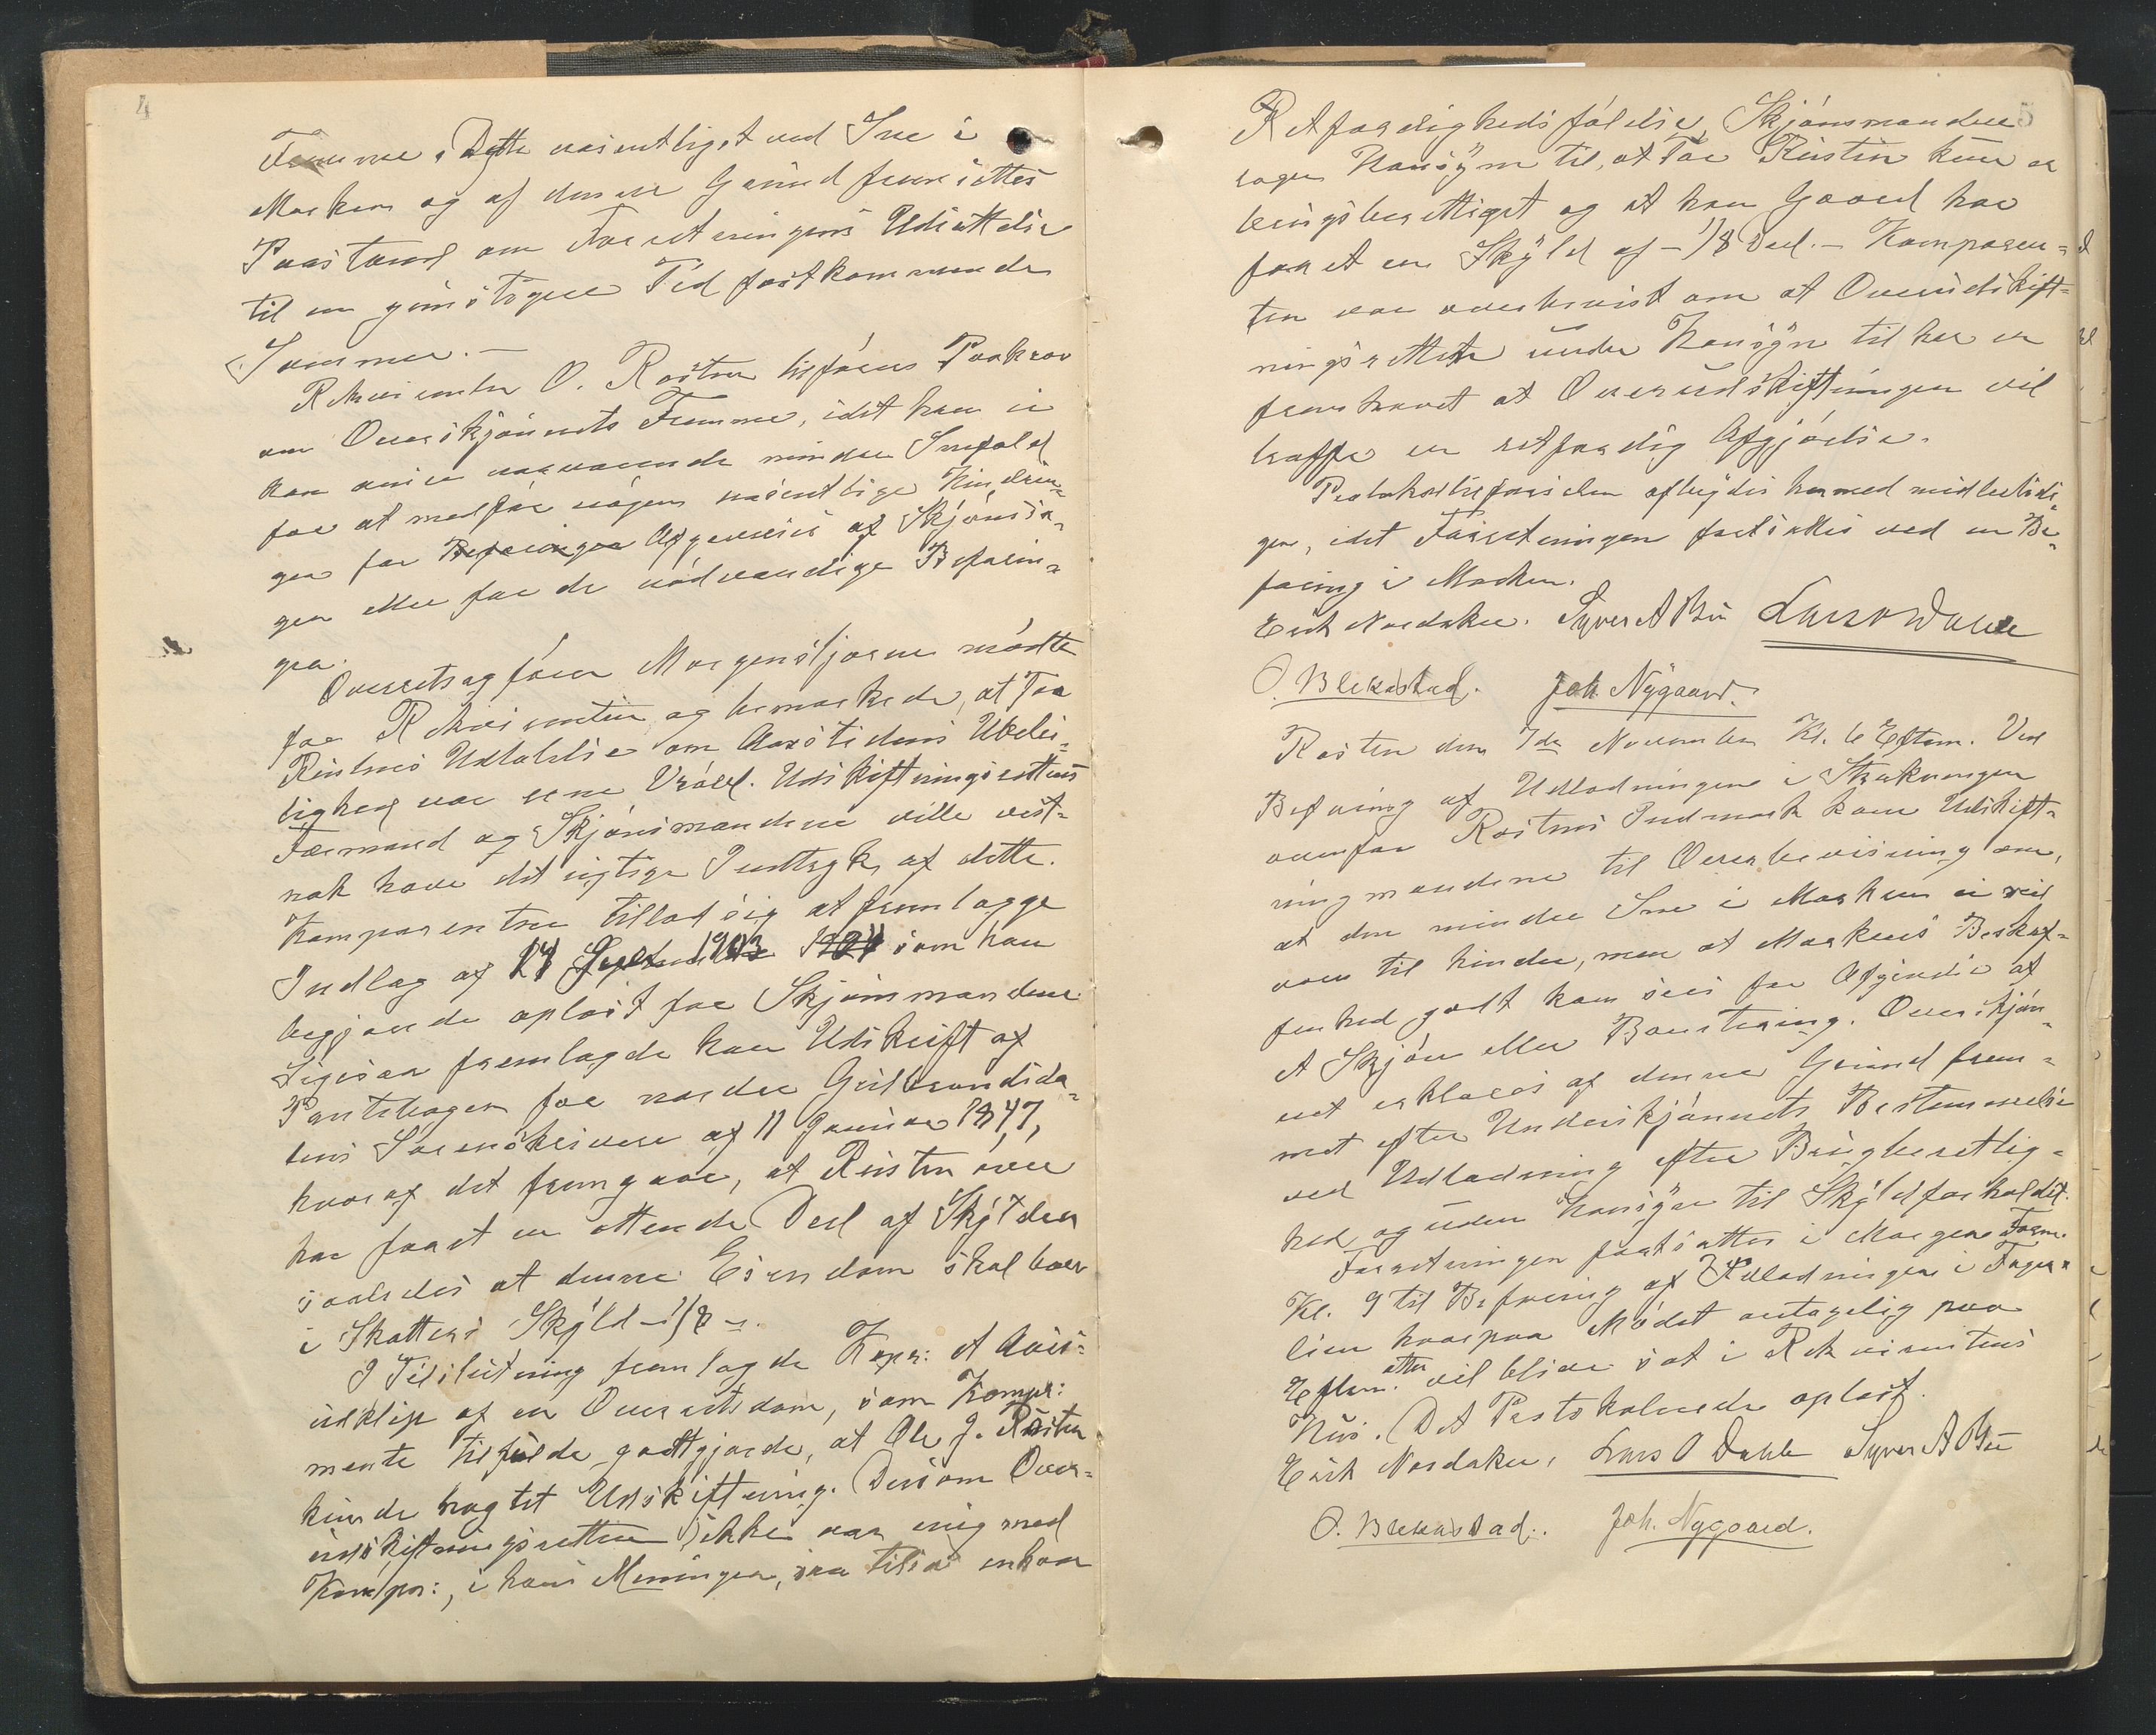 4
Fremme, Dette væsentligst ved Sne i
Marken og af denne Grund fremsættes
Paastand om Forretningens Udsættelse
til en gunstigere Tid førstkommende
Sommer. —
Rekvirenten O. Rusten tilføies Paakrav
om Overskjønnets Fremme, idet han ei
kan anse nærværende mindre Snefald
for at medføre nogen væsentlige Hindrin-
ger for Befaringen Afgivelse af Skjønsin-
ger eller for de nødvendige Befarin-
ger.
Overretssagfører Morgenstjerne mødte
for Rekvirenten og bemærkede, at Tor
Rustens Udtalelse om Aarstidens Ubelei-
lighed var rene Vrøvl. Udskiftningsrettens
Formand og Skjønsmændene ville vist-
nok have det rigtige Indtryk af dette.
Komparenten tillod sig at fremlægge
Indlæg af 24 Septem 1903 1904 som han
begjærede oplæst for Skjønsmændene.
Ligesaa fremlagde han Udskrift af
Pantebogen for nordre Gudbrandsda-
lens Sorenskriveri af 11 Januar 1847,
hvoraf det fremgaar, at Rusten øvre
har faaet en ottende Deel af Skylden
saaledes at denne Eiendom skal bære
i Skattens Skyld – 1/8 –.
I Tilslutning fremlagde Kopr: et Avis-
udklip af en Overretsdom, som Kompr:
mente tilfulde godtgjorde, at Ole J. Rusten
kunde krævet Udskiftning. Dersom Over-
udskiftningsretten ikke var enig med
Kompr:, i hans Meninger, saa tilsa enhver
5
Retfærdighedsfølelse, Skjønsmændene
tage Hensyn til, at Tor Rusten kun er
beingsberettiget og at han Gaard har
faaet en Skyld af – 1/8 Deel. – Komparen-
ten var overbevist om at Overudskift-
ningsretten under Hensyn til her er
fremhævet at Overudskiftningen vil
træffe en retfærdig Afgjørelse.
Protokoltilførselen afbrydes hermed midlertidi
gen, idet Forretningen fortsættes ved en Be-
faring i Marken.
Erik Nordaker. Syver A Bu Lars O Dahle
O. Blekastad. Joh. Nygaard.
Rusten den 7de November Kl. 6 Eftem. Ved
Befaring af Udladningene i Strækningen
ovenfor Rustens Indmark kom Udskift-
ningmændene til Overbevisning om,
at den mindre Sne i Marken ei vil
være til hinder, men at Markens Beskaf-
fenhed godt kan sees for Afgivelse af
et Skjøn eller Bonitering. Overskjøn-
net erklæres af denne Grund frem-
met efter Underskjønnets Bestemmelse
ved Udladning efter Brugberettig-
hed og uden Hensyn til Skyldforholdet.
Forretningen fortsættes i Morgen Form.
Kl. 9 til Befaring af Udladningen i Fager-
lien hvorpaa Mødet antagelig paa
Eftem. atter vil blive sat i Rekvirentens
Hus. Det Protokolerede oplæst.
Erik Nordaker, Lars O Dahle Syver A Bu
O. Blekastad. Joh. Nygaard.